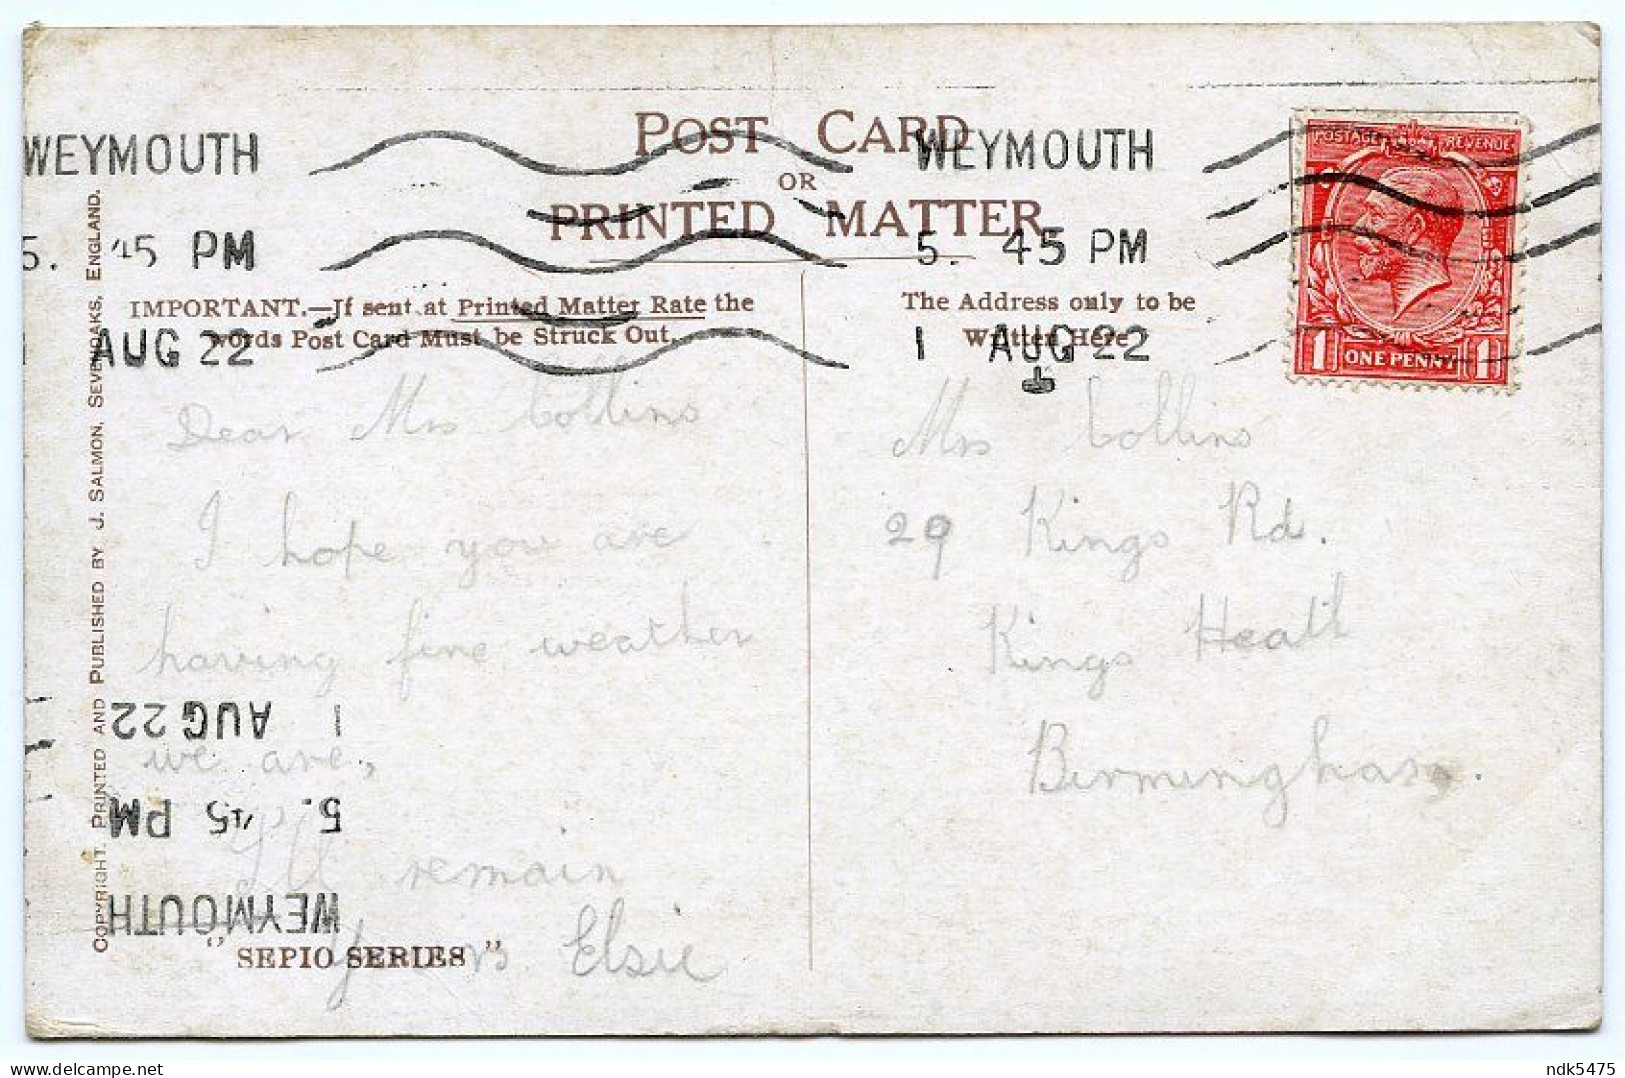 POST CARD
OR
PRINTED MATTER
WEYMOUTH
5. 45 PM
AUG 22
WEYMOUTH
5. 45 PM
1 AUG 22
POSTAGE REVENUE
1 ONE PENNY 1
IMPORTANT.—If sent at Printed Matter Rate the
words Post Card Must be Struck Out.
The Address only to be
Written Here
Dear Mrs Collins
I hope you are
having fine weather
we are,
I'll remain
Yours Elsie
Mrs Collins
29 Kings Rd.
Kings Heath
Birmingham.
1 AUG 22
5. 45 PM
WEYMOUTH
"SEPIO SERIES"
COPYRIGHT. PRINTED AND PUBLISHED BY J. SALMON, SEVENOAKS, ENGLAND.
ndk5475